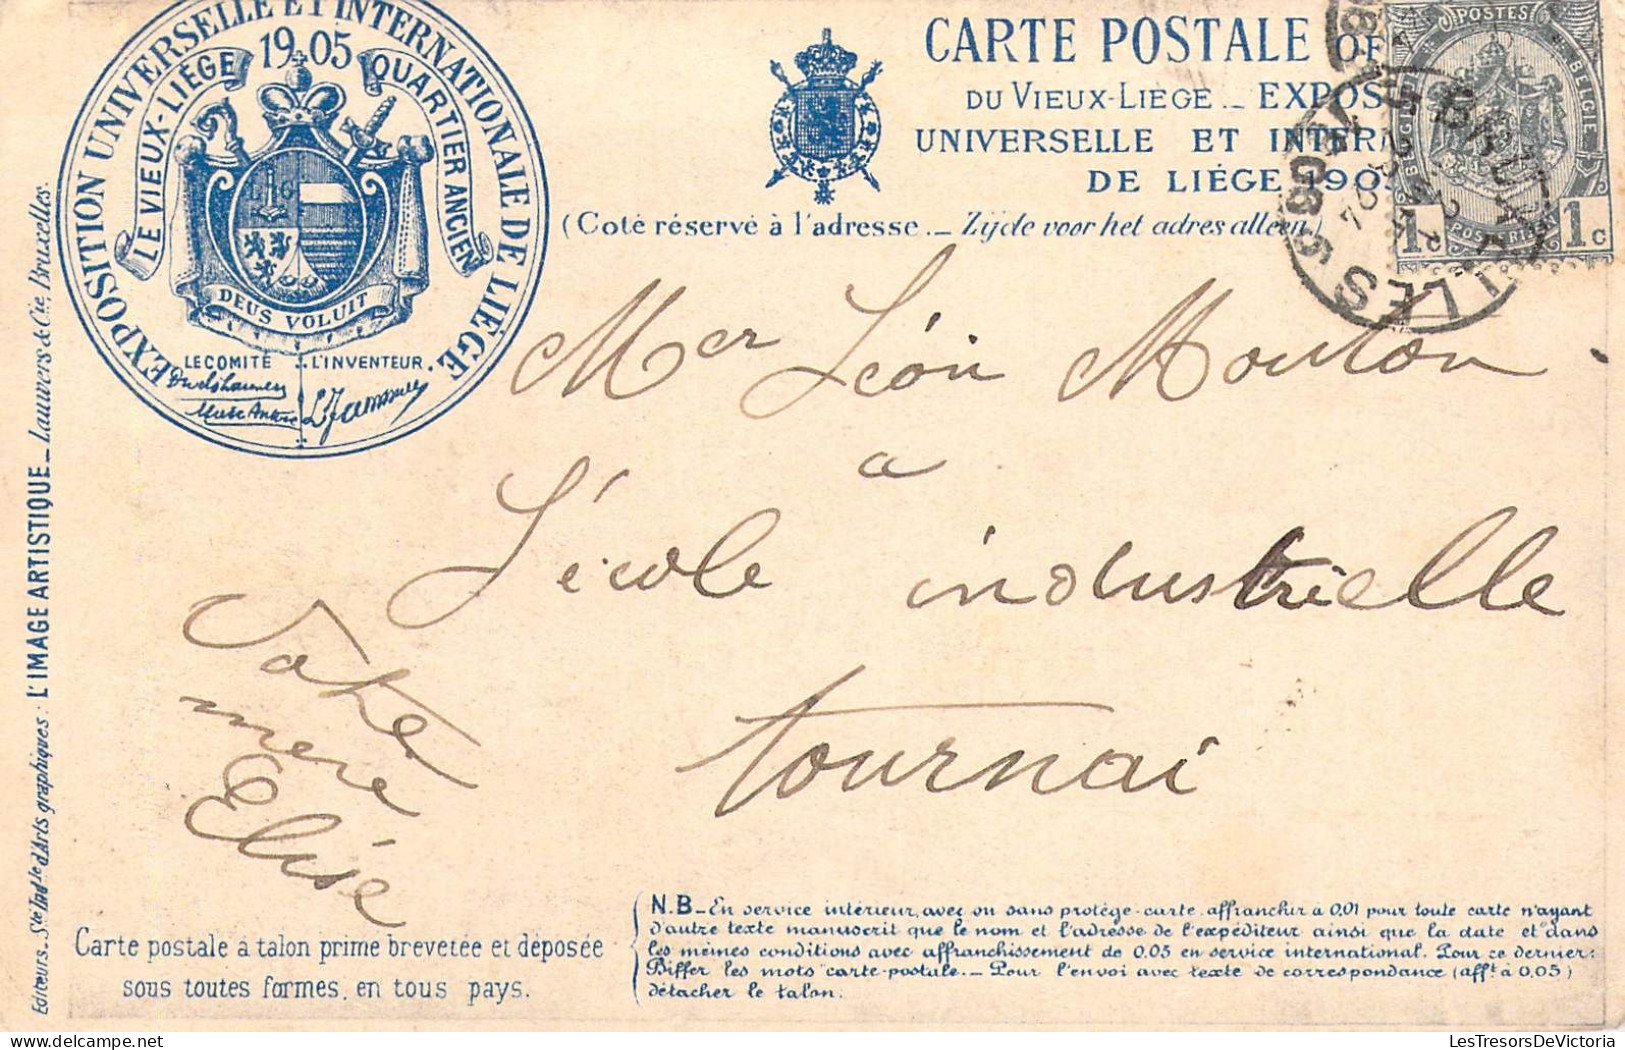 EXPOSITION UNIVERSELLE ET INTERNATIONALE DE LIÈGE
1905
LE VIEUX-LIÈGE QUARTIER ANCIEN
DEUS VOLUIT
LE COMITÉ L'INVENTEUR.
CARTE POSTALE OF
DU VIEUX-LIÈGE _ EXPOS
UNIVERSELLE ET INTERN
DE LIÉGE 1905
(Coté réservé à l'adresse._ Zijde voor het adres alleen)
POSTES
BELGIE
1 1c
Mer Léon Mouton
a
L'école industrielle
tournai
Votre
mère
Elise
Editeurs._ Sté Indle d'Arts graphiques: L'IMAGE ARTISTIQUE _ Lauwers & Cie, Bruxelles.
Carte postale à talon prime brevetée et déposée
sous toutes formes, en tous pays.
N.B_En service intérieur, avec ou sans protège-carte, affranchir à 0,01 pour toute carte n'ayant
d'autre texte manuscrit que le nom et l'adresse de l'expéditeur ainsi que la date et dans
les mêmes conditions avec affranchissement de 0.05 en service international. Pour ce dernier:
Biffer les mots "carte-postale._ Pour l'envoi avec texte de correspondance (afft à 0,05)
détacher le talon.
LesTresorsDeVictoria
www.delcampe.net